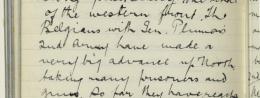 of the western front. The
Belgians with Gen. Plumers
2nd Army have made a
very big advance up North
taking many prisoners and
guns. So far they have reach